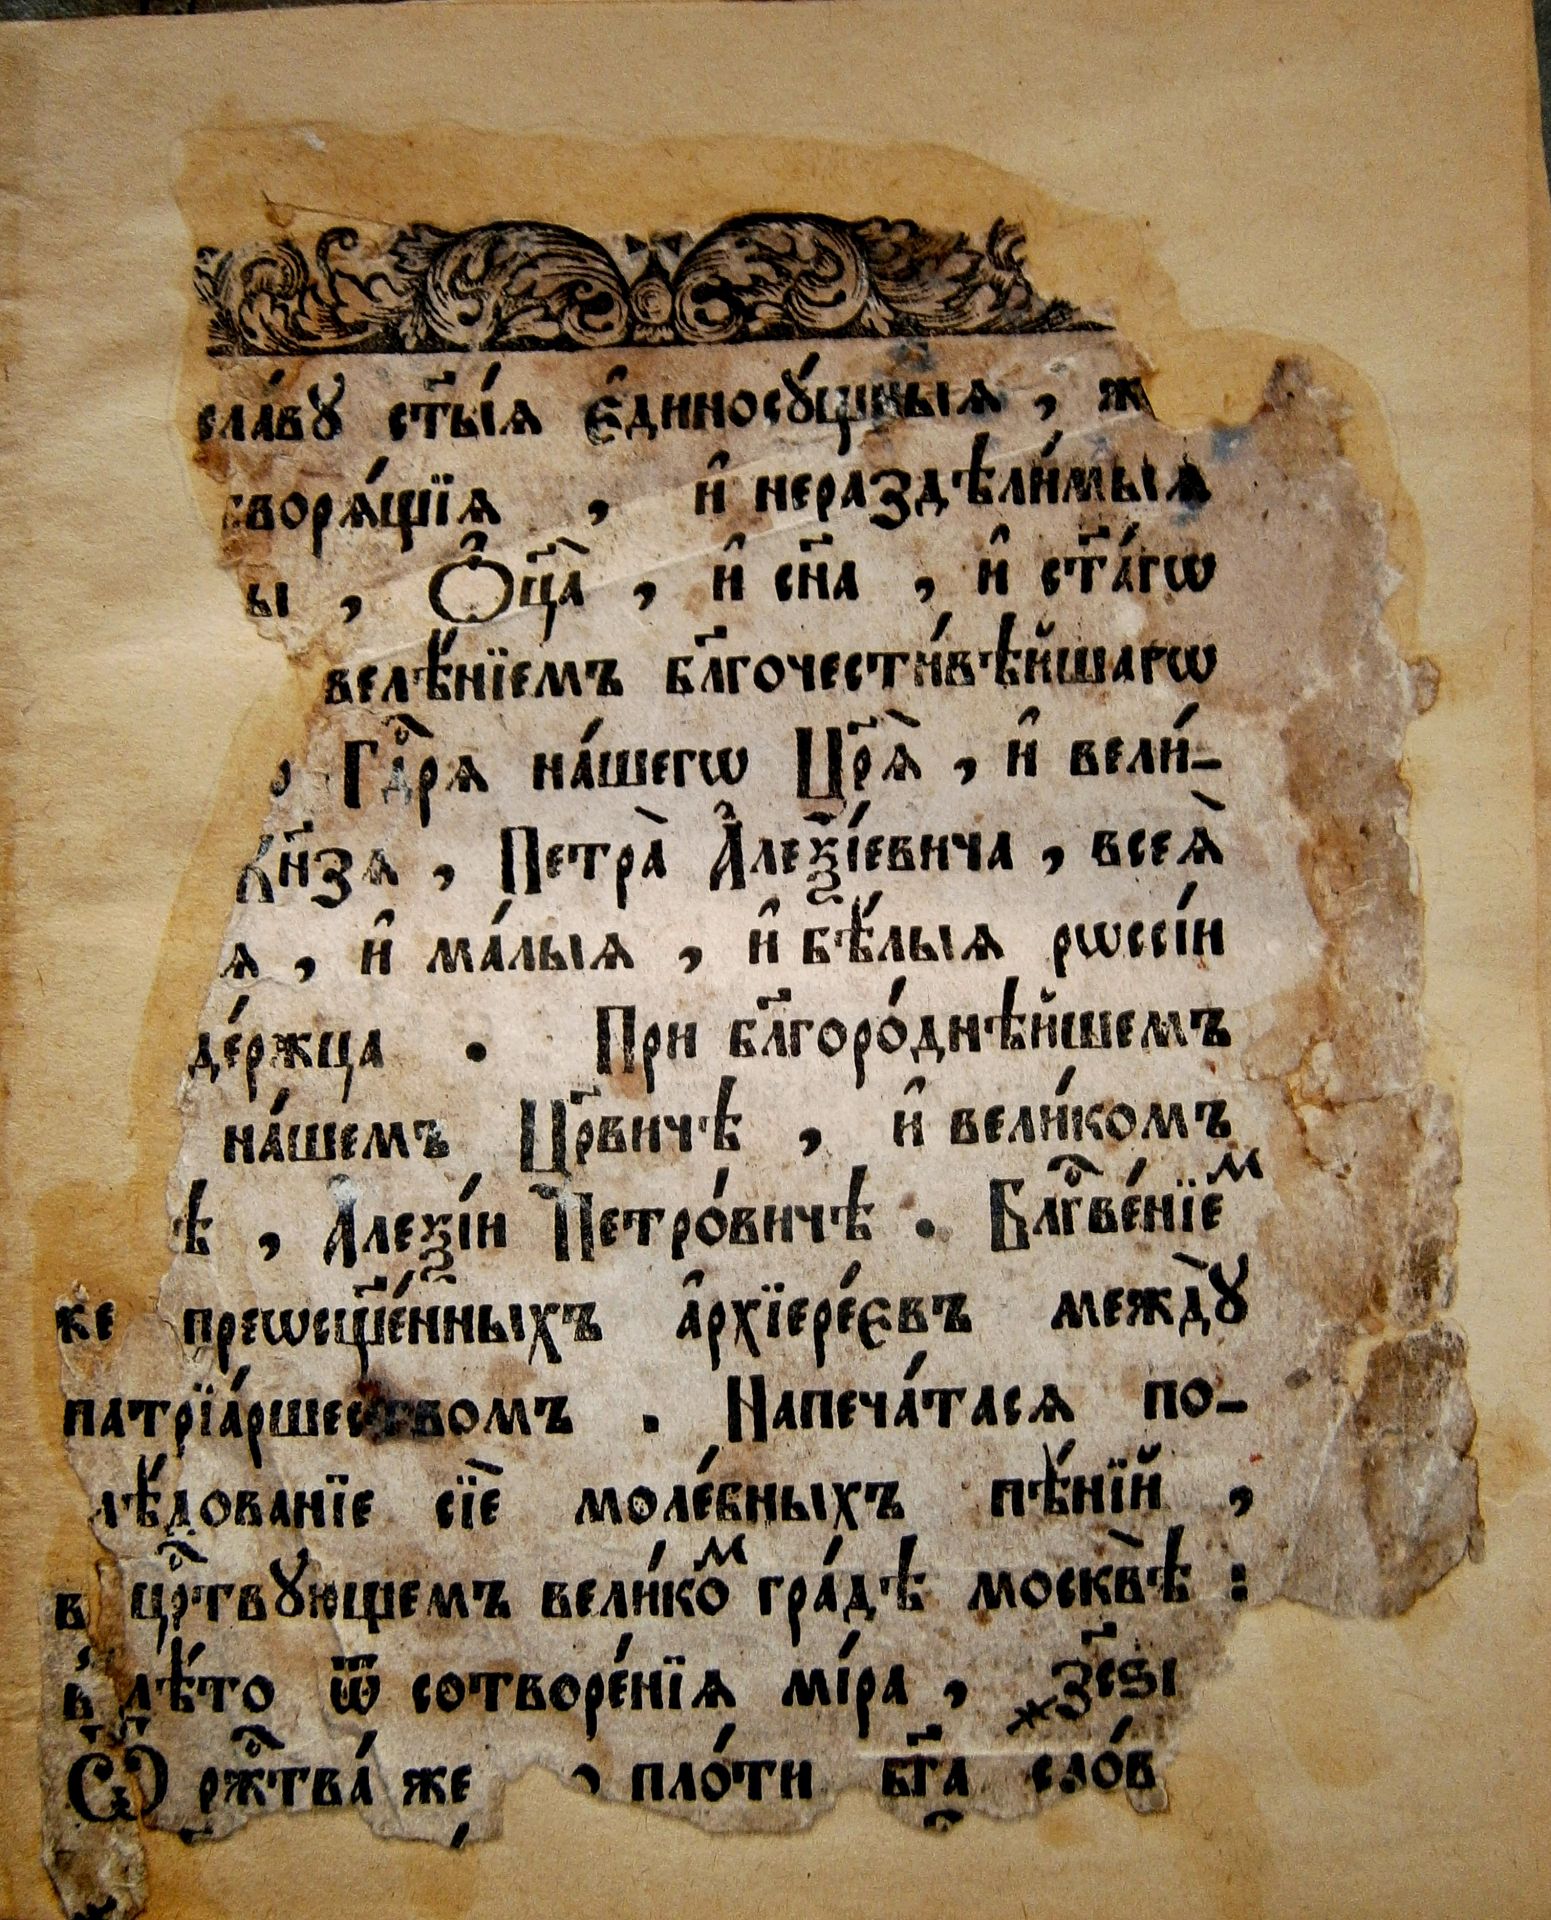 сла́вꙋ ст҃ы́ѧ є҆диносꙋ́щныѧ ,
творѧ́щїѧ , и҆ нераздѣли́мыѧ
, Ѻ҆ц҃а̀ , и҆ сн҃а , и҆ ст҃а́гѡ
велѣ́нїемъ бл҃гочести́вѣйшагѡ
Гдⷭ҇рѧ на́шегѡ Цр҃ѧ̀ , и҆ вели́-
Кн҃зѧ , Петра̀ А҆леѯі́евича , всеѧ̀
, и҆ ма́лыѧ , и҆ бѣ́лыѧ рѡссі́и
де́ржца . При бл҃горо́днѣйшемъ
на́шемъ Цр҃вичѣ , и҆ вели́комъ
, А҆леѯі́и Петро́вичѣ . Блгⷭ҇ве́нїеⷨ
же преѡсщ҃е́нныхъ а҆рхїере́євъ междꙋ̀
патрїа́ршеством . Напеча́тасѧ по-
лѣ́дованїе сїѐ моле́бныхъ пѣ́нїй ,
в црⷭ҇твꙋющемъ вели́коⷨ гра́дѣ москвѣ̀ :
в лѣ́то ѿ сотворе́нїѧ мі́ра , ҂зс҃ѕі
Ѿ ржⷭ҇тва́ же пло́ти бг҃а сло́в